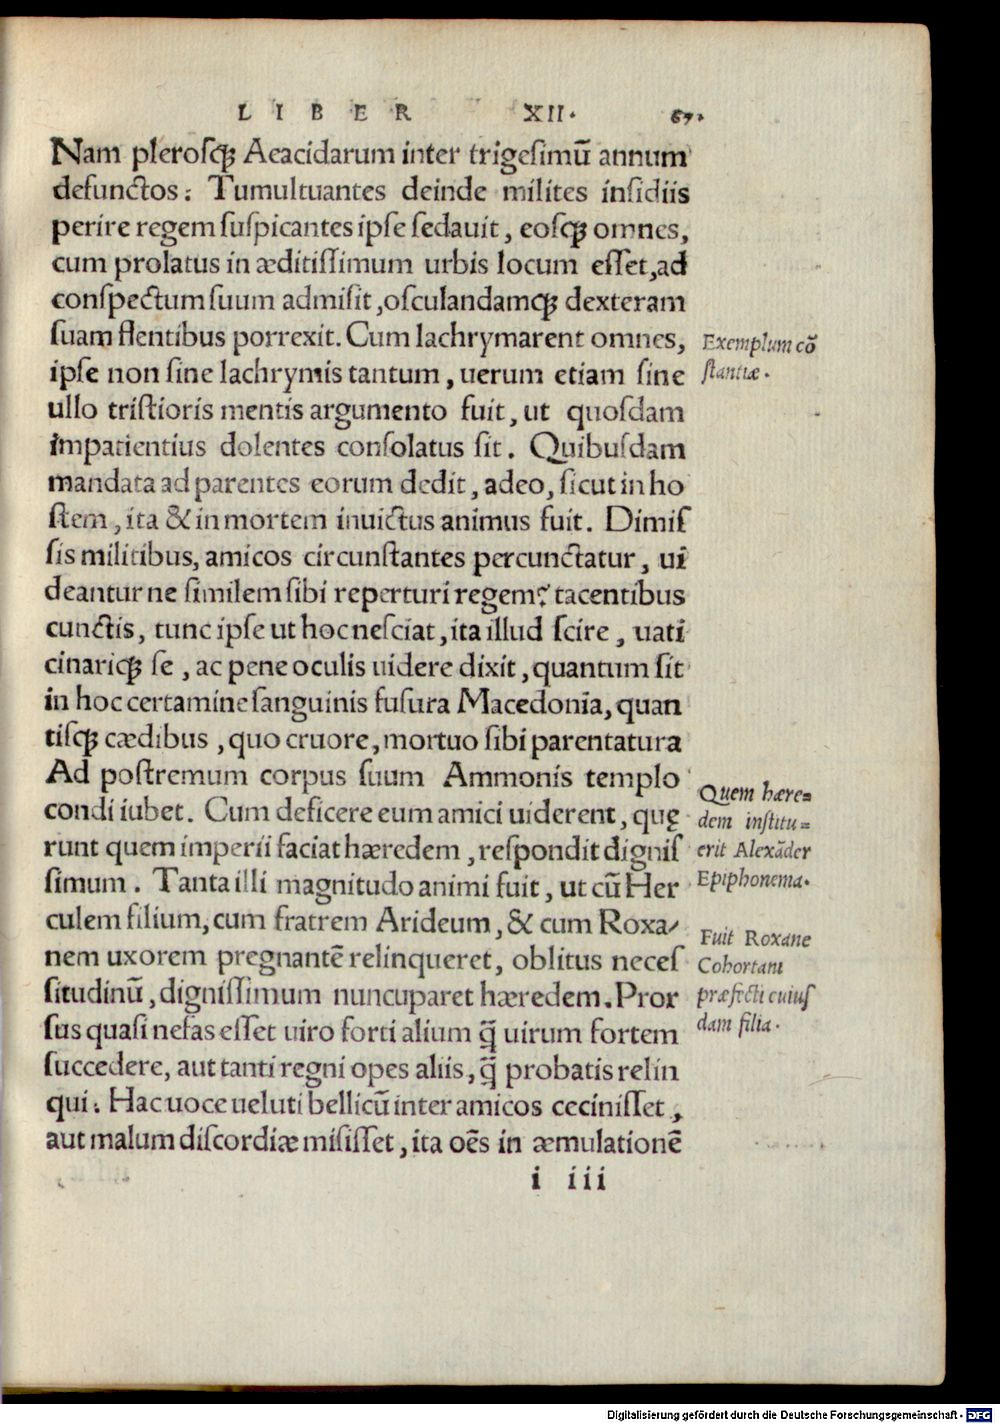 LIBER XII. 67.
Nam pleroſq̃ Aeacidarum inter trigeſimū annum
defunctos: Tumultuantes deinde milites inſidiis
perire regem ſuſpicantes ipſe ſedauit, eoſq̃ omnes,
cum prolatus in æditiſſimum urbis locum eſſet, ad
conſpectum ſuum admiſit, oſculandamq̃ dexteram
ſuam flentibus porrexit. Cum lachrymarent omnes,
ipſe non ſine lachrymis tantum, uerum etiam ſine
ullo triſtioris mentis argumento fuit, ut quoſdam
impatientius dolentes conſolatus ſit. Quibuſdam
mandata ad parentes eorum dedit, adeo, ſicut in ho
ſtem, ita & in mortem inuictus animus fuit. Dimiſ
ſis militibus, amicos circunſtantes percunctatur, ui
deantur ne ſimilem ſibi reperturi regem? tacentibus
cunctis, tunc ipſe ut hoc neſciat, ita illud ſcire, uati
cinariq̃ ſe, ac pene oculis uidere dixit, quantum ſit
in hoc certamine ſanguinis fuſura Macedonia, quan
tiſq̃ cædibus, quo cruore, mortuo ſibi parentatura
Ad poſtremum corpus ſuum Ammonis templo
condi iubet. Cum deficere eum amici uiderent, quę
runt quem imperii faciat hæredem, reſpondit digniſ
ſimum. Tanta illi magnitudo animi fuit, ut cū Her
culem filium, cum fratrem Arideum, & cum Roxa-
nem uxorem pregnantē relinqueret, oblitus neceſ
ſitudinū, digniſſimum nuncuparet hæredem. Pror
ſus quaſi nefas eſſet uiro forti alium q̃ uirum fortem
ſuccedere, aut tanti regni opes aliis, q̃ probatis relin
qui. Hac uoce ueluti bellicū inter amicos ceciniſſet,
aut malum diſcordiæ miſiſſet, ita oēs in æmulationē
i iii
Exemplum cō
ſtantiæ.
Quem hære=
dem inſtitu=
erit Alexāder
Epiphonema.
Fuit Roxane
Cohortani
præfecti cuiuſ
dam filia.
Digitalisierung gefördert durch die Deutsche Forschungsgemeinschaft - DFG